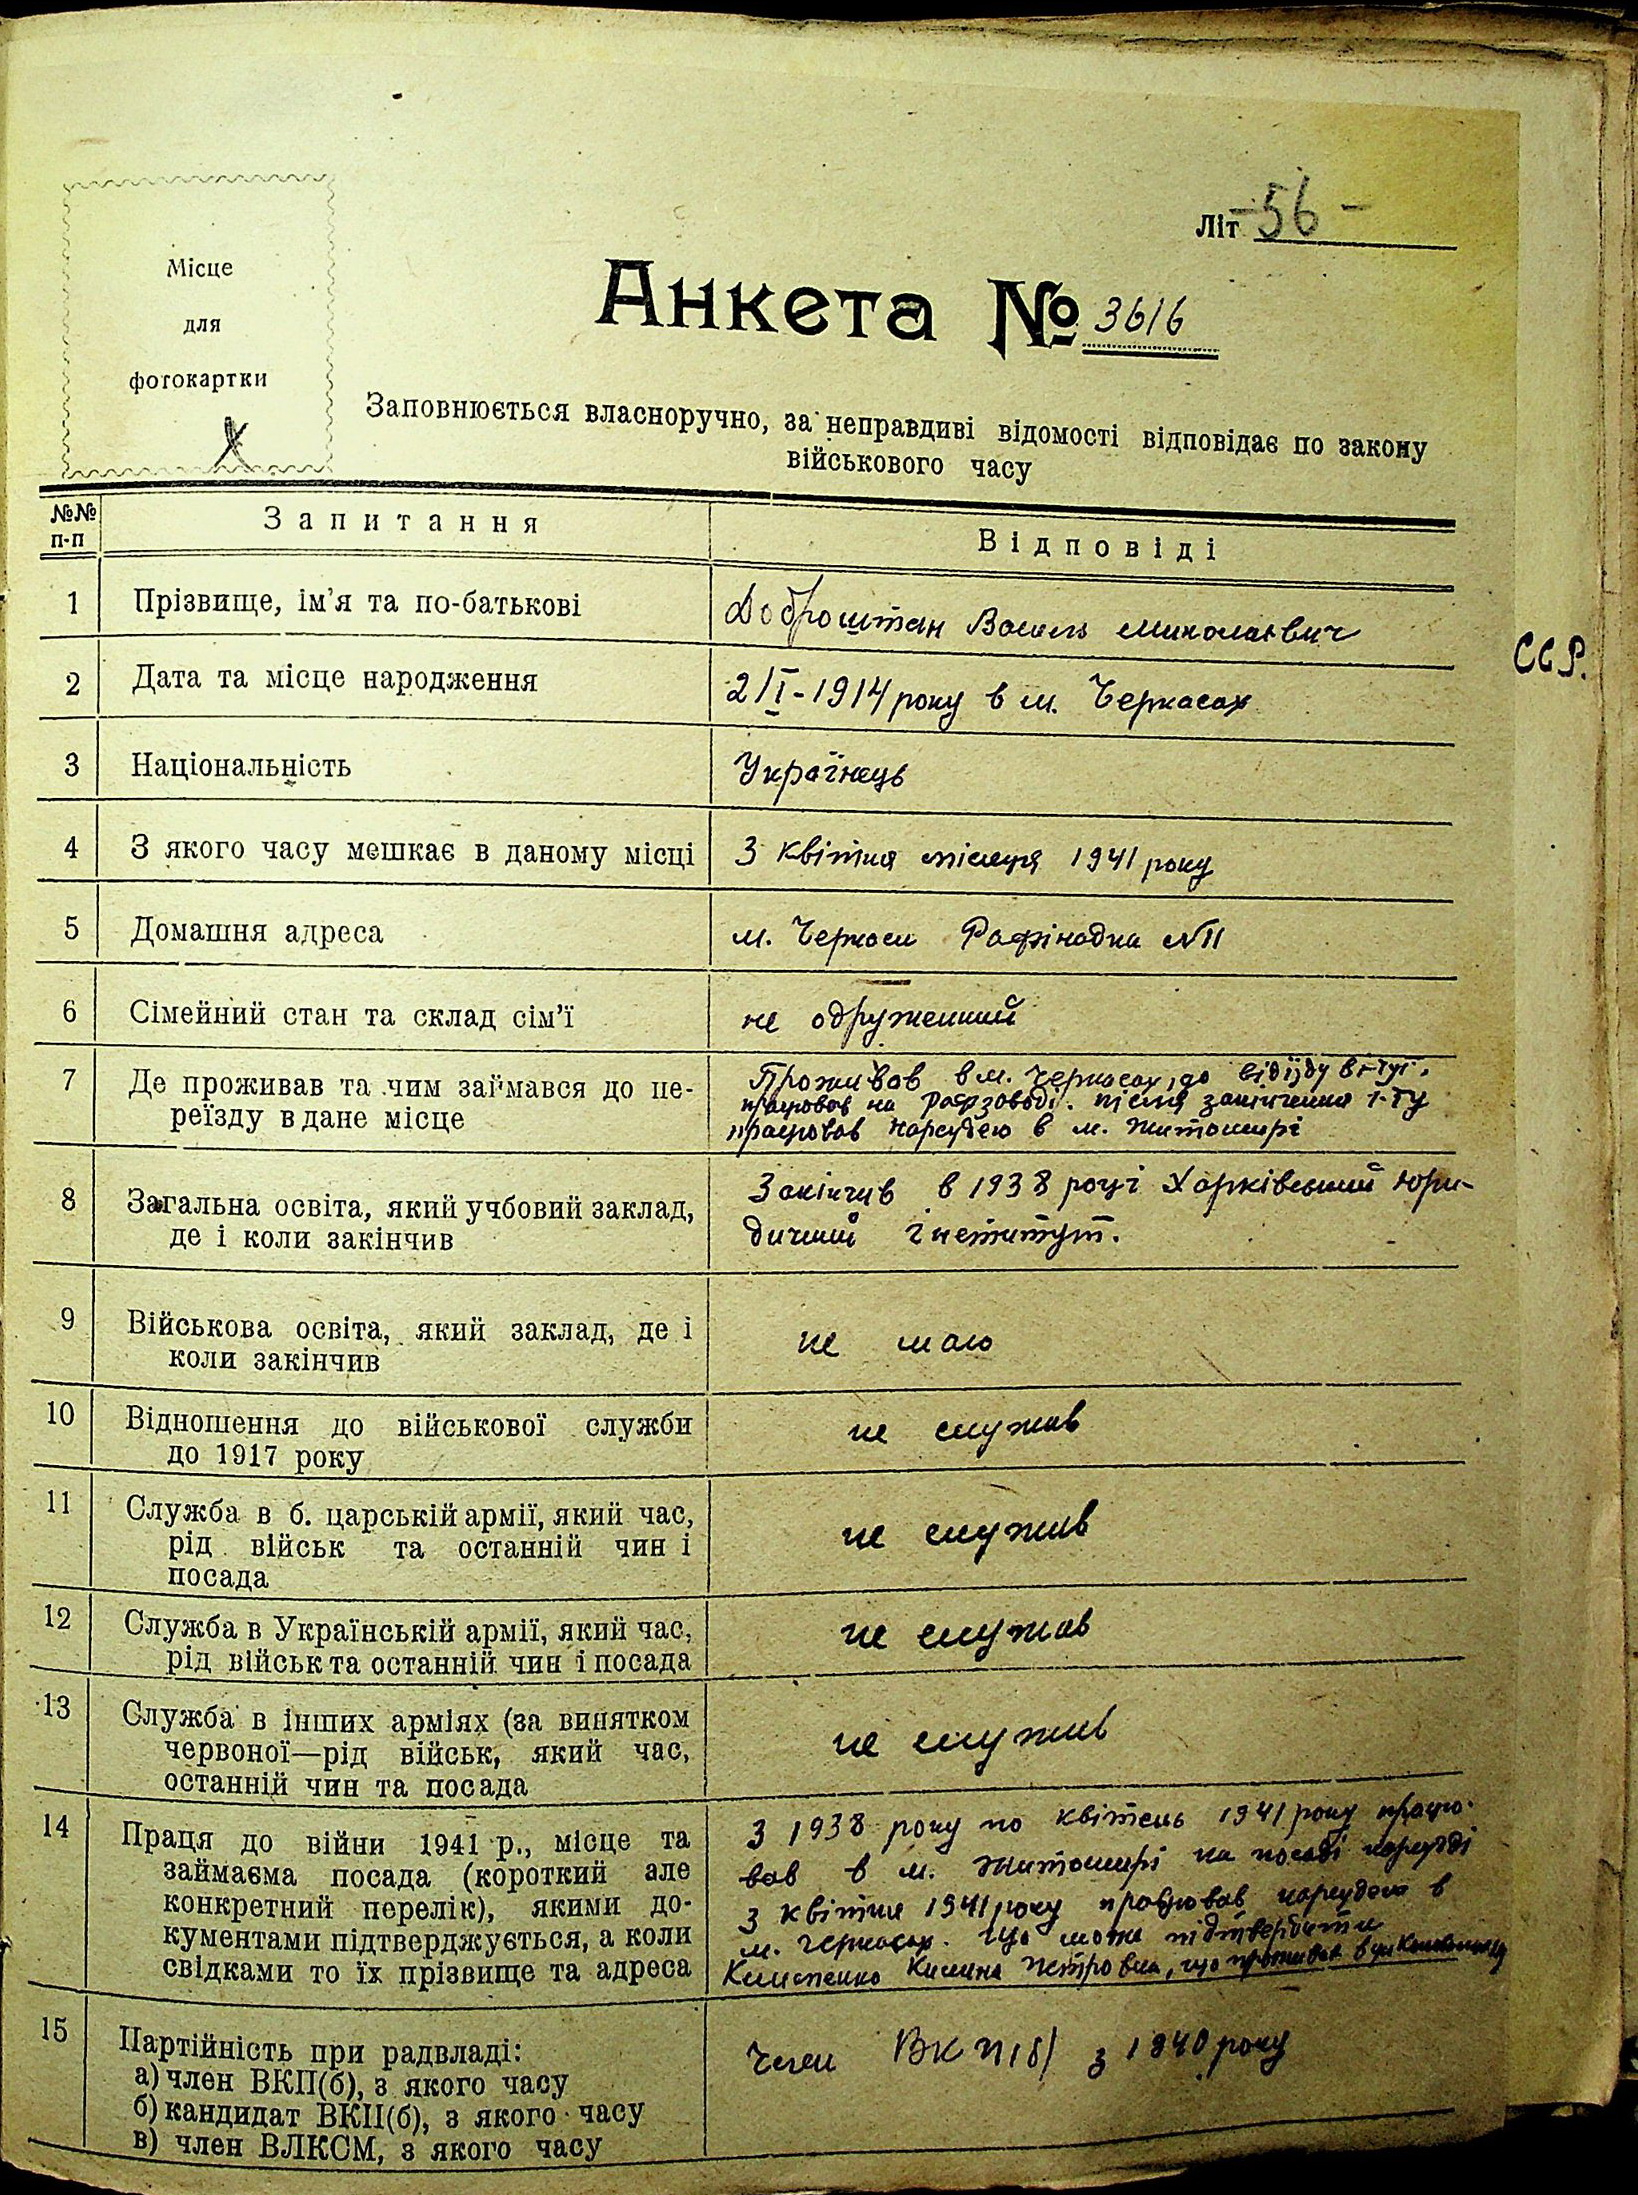 Літ -56-
Місце
для
фотокартки
Анкета № 3616
Заповнюється власноручно, за неправдиві відомості відповідає по закону
військового часу
№№ п-п
Запитання
Відповіді
1
Прізвище, ім'я та по-батькові
Доброштан Василь Миколаєвич
ССР.
2
Дата та місце народження
2/I-1914 року в м. Черкасах
3
Національність
Українець
4
З якого часу мешкає в даному місці
З квітня місяця 1941 року
5
Домашня адреса
м. Черкаси Рафінадна №11
6
Сімейний стан та склад сім'ї
не одружений
7
Де проживав та чим займався до пе-
реїзду в дане місце
Проживав в м. Черкасах, до від'їзду в і-тут.
працював на рафзаводі. після закінчення і-ту
працював нарсудею в м. Житомирі
8
Загальна освіта, який учбовий заклад,
де і коли закінчив
Закінчив в 1938 році Харківський юри-
дичний інститут.
9
Військова освіта, який заклад, де і
коли закінчив
не маю
10
Відношення до військової служби
до 1917 року
не служив
11
Служба в б. царській армії, який час,
рід військ та останній чин і
посада
не служив
12
Служба в Українській армії, який час,
рід військ та останній чин і посада
не служив
13
Служба в інших арміях (за винятком
червоної—рід військ, який час,
останній чин та посада
не служив
14
Праця до війни 1941 р., місце та
займаєма посада (короткий але
конкретний перелік), якими до-
кументами підтверджується, а коли
свідками то їх прізвище та адреса
З 1938 року по квітень 1941 року працю-
вав в м. Житомирі на посаді нарсудді
З квітня 1941 року працював нарсудею в
м. Черкасах. Що може підтвердити
Петровна, що проживає в
15
Партійність при радвладі:
а) член ВКП(б), з якого часу
б) кандидат ВКП(б), з якого часу
в) член ВЛКСМ, з якого часу
Член ВКП/б/ з 1940 року